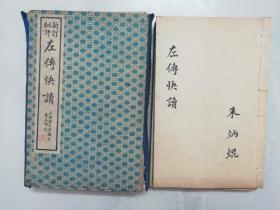 新訂
批評
左傳快讀
左傳快讀
朱炳焜